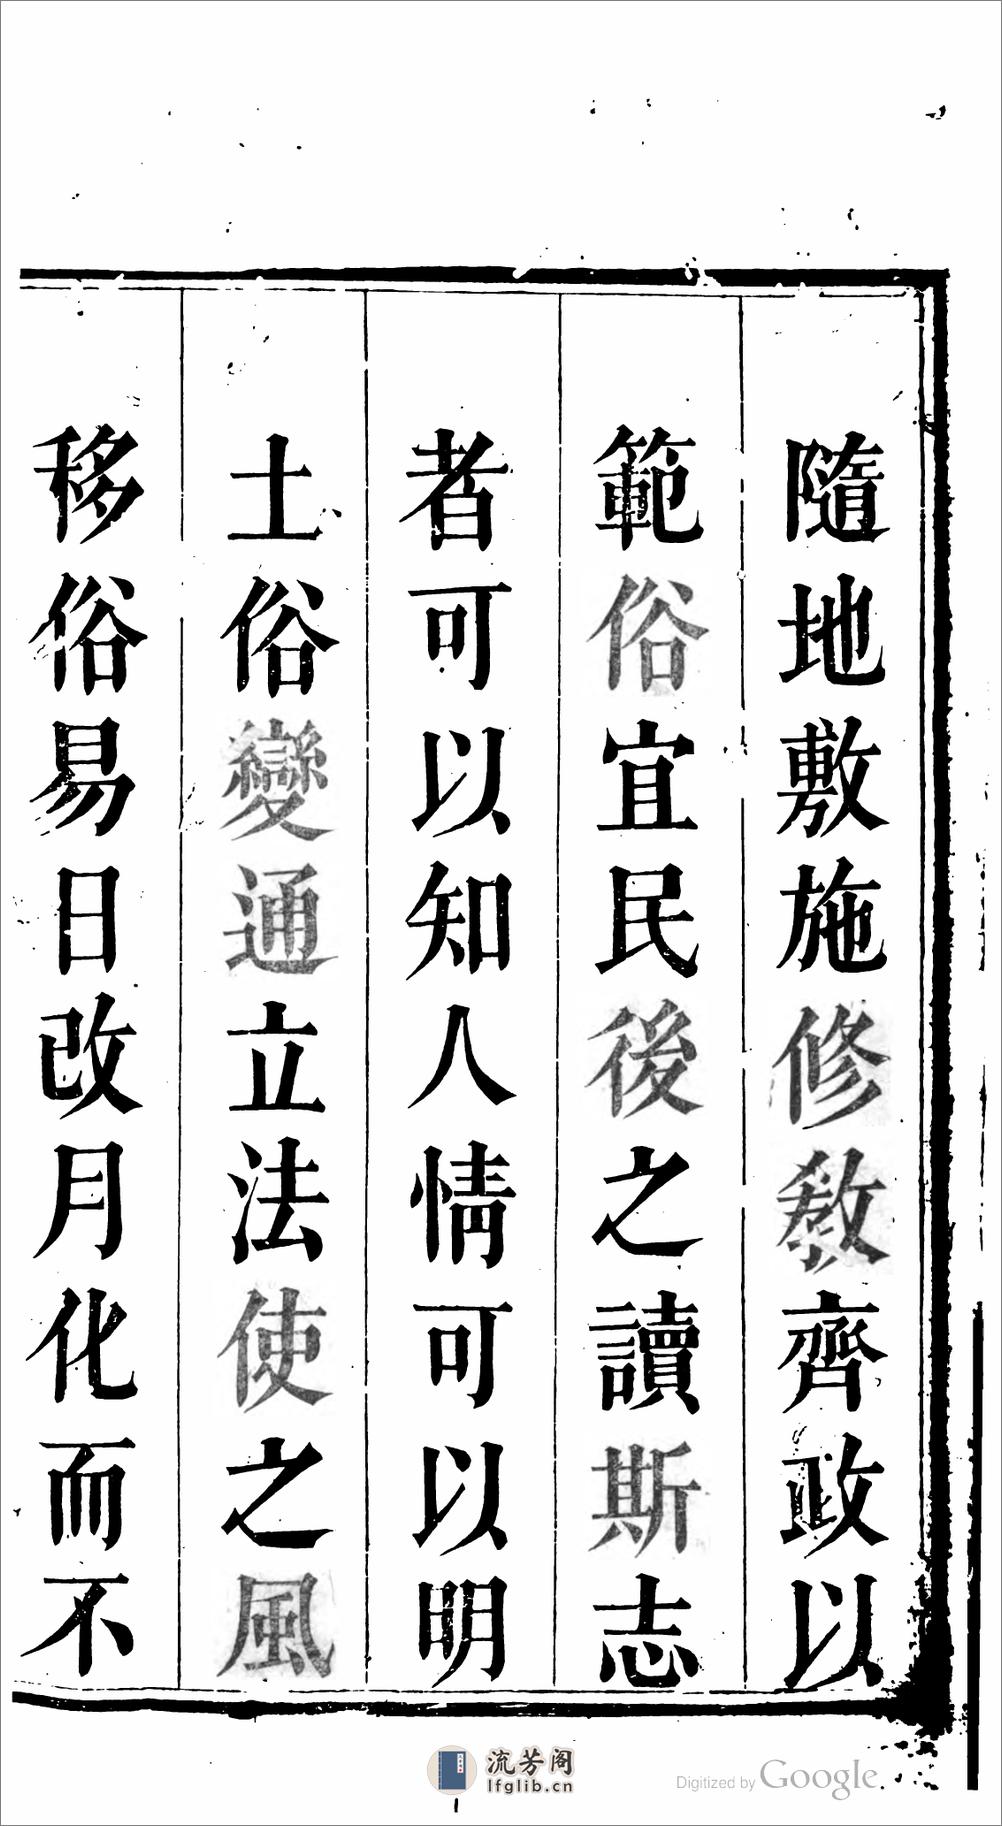 隨地敷施修敎齊政以
範俗宜民後之讀斯志
者可以知人情可以明
土俗變通立法使之風
移俗易日改月化而不
流芳阁
lfglib.cn
Digitized by Google